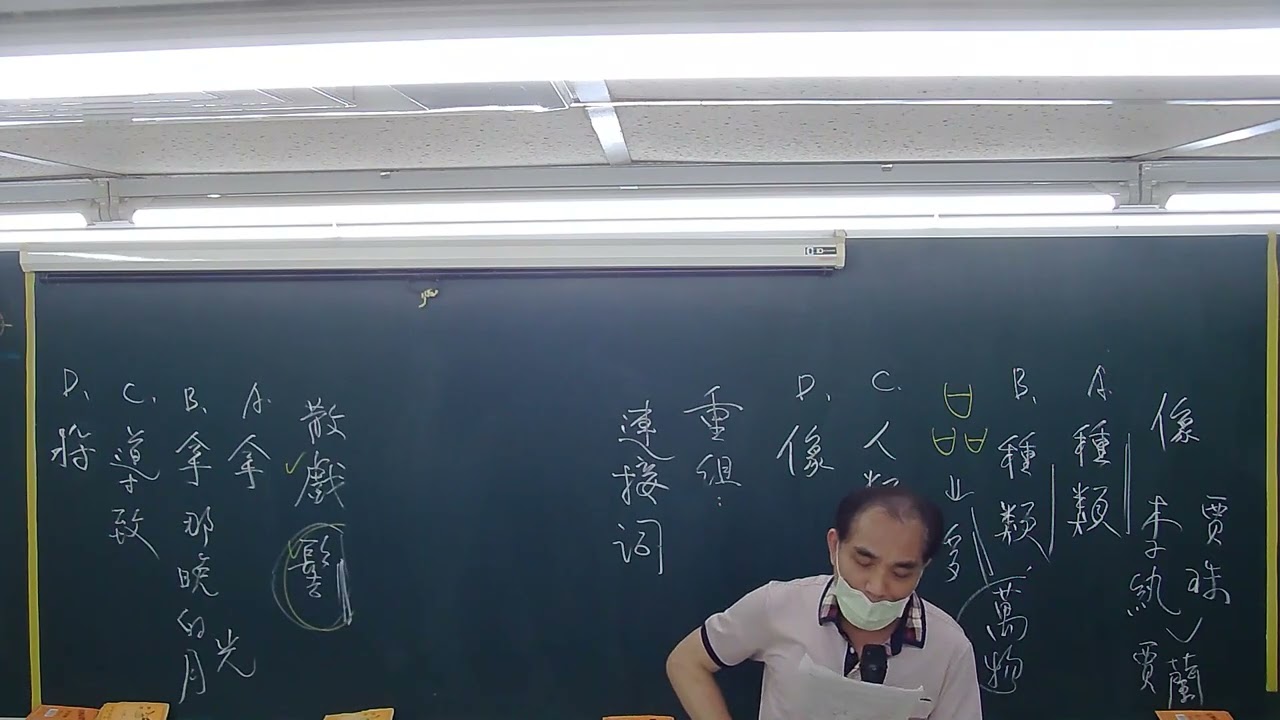 像
賈珠
李紈
賈蘭
A. 種類
B. 種類、萬物
C. 人類
D. 像
重組：
連接詞
散戲
A. 拿
B. 拿那晚的月光
C. 導致
D. 將